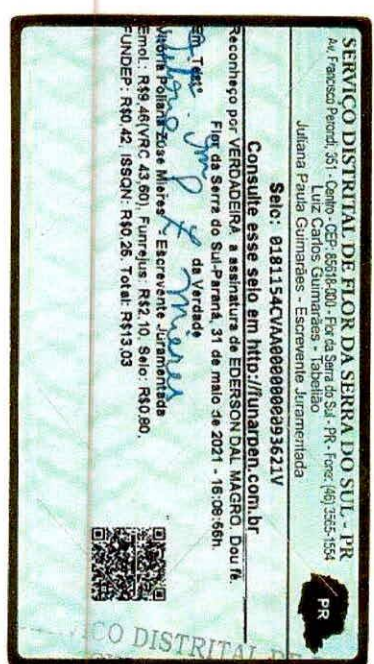 SERVIÇO DISTRITAL DE FLOR DA SERRA DO SUL - PR
Av. Francisco Perondi, 351 - Centro - CEP: 85618-000 - Flor da Serra do Sul - PR - Fone: (46) 3565-1554
Luiz Carlos Guimarães - Tabelião
Juliana Paula Guimarães - Escrevente Juramentada
PR
Selo: 0181154CVAA0000000093621V
Consulte esse selo em http://funarpen.com.br
Reconheço por VERDADEIRA a assinatura de EDERSON DAL MAGRO. Dou fé.
Flor da Serra do Sul-Paraná, 31 de maio de 2021 - 16:08:56h.
Em Testº da Verdade
Vitória Poliana Zose Mieres - Escrevente Juramentada
Emol.: R$9,46(VRC 43,60), Funrejus: R$2,10, Selo: R$0,80,
FUNDEP: R$0,42, ISSQN: R$0,26. Total: R$13,03
ÇO DISTRITAL DE